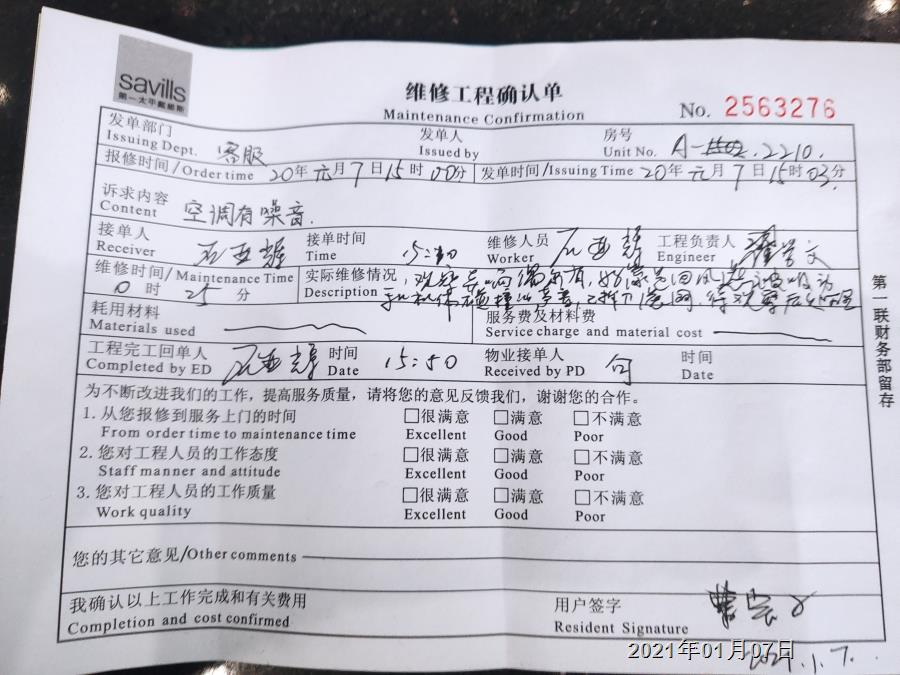 savills
第一太平戴维斯
维修工程确认单
Maintenance Confirmation
No. 2563276
发单部门 发单人 房号
Issuing Dept. 客服 Issued by Unit No. A- .2210.
报修时间/Order time 20年元月7日15时00分 发单时间/Issuing Time 20年元月7日15时03分
诉求内容
Content 空调有噪音.
接单人 接单时间 维修人员 工程负责人
Receiver Time Worker Engineer
维修时间/Maintenance Time 实际维修情况
0时25分 Description
耗用材料 服务费及材料费
Materials used Service charge and material cost
工程完工回单人 时间 物业接单人 时间
Completed by ED Date 15:50 Received by PD 何 Date
为不断改进我们的工作，提高服务质量，请将您的意见反馈我们，谢谢您的合作。
1. 从您报修到服务上门的时间 □很满意 □满意 □不满意
From order time to maintenance time Excellent Good Poor
2. 您对工程人员的工作态度 □很满意 □满意 □不满意
Staff manner and attitude Excellent Good Poor
3. 您对工程人员的工作质量 □很满意 □满意 □不满意
Work quality Excellent Good Poor
您的其它意见/Other comments
我确认以上工作完成和有关费用 用户签字
Completion and cost confirmed Resident Signature
2021.1.7.
2021年01月07日
第一联财务部留存